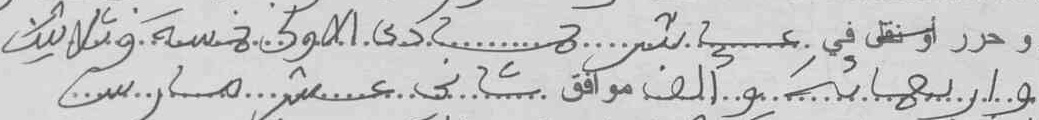 و حرر أو نقل في عاشر جمادى الاولى خمسة وثلاثين
واربعمائة وألف موافق ثاني عشر مارس